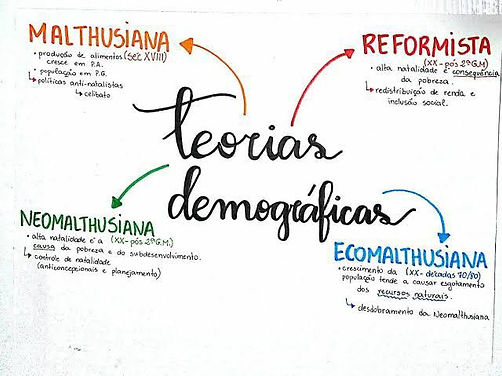 MALTHUSIANA
• produção de alimentos (séc XVIII)
cresce em P.A.
• população em P.G.
↳ políticas anti-natalistas
↳ celibato
REFORMISTA
(XX - pós 2ª G.M)
• alta natalidade é consequência
da pobreza
↳ redistribuição de renda e
inclusão social.
teorias
demográficas
NEOMALTHUSIANA
• alta natalidade é a (XX - pós 2ª G.M.)
causa da pobreza e do subdesenvolvimento.
↳ controle de natalidade
(anticoncepcionais e planejamento)
ECOMALTHUSIANA
• crescimento da (XX - décadas 70/80)
população tende a causar esgotamento
dos recursos naturais.
↳ desdobramento da Neomalthusiana